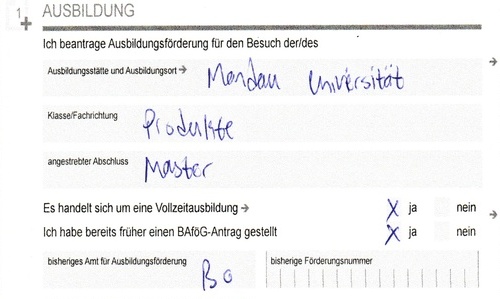 1 AUSBILDUNG
Ich beantrage Ausbildungsförderung für den Besuch der/des
Ausbildungsstätte und Ausbildungsort → Mandau Universität
Klasse/Fachrichtung Produkte
angestrebter Abschluss Master
Es handelt sich um eine Vollzeitausbildung → X ja nein
Ich habe bereits früher einen BAföG-Antrag gestellt X ja nein
bisheriges Amt für Ausbildungsförderung Bo bisherige Förderungsnummer